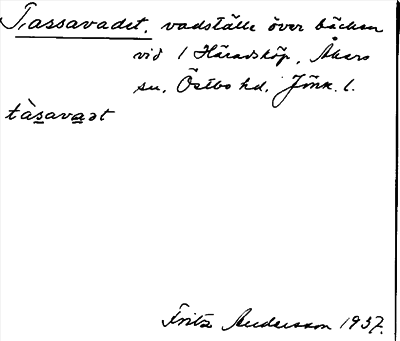 Tassavadet, vadställe över bäcken
vid 1 Häradsköp, Åkers
sn, Östbo hd, Jönk. l.
tàsavaət
Fritz Andersson 1937.